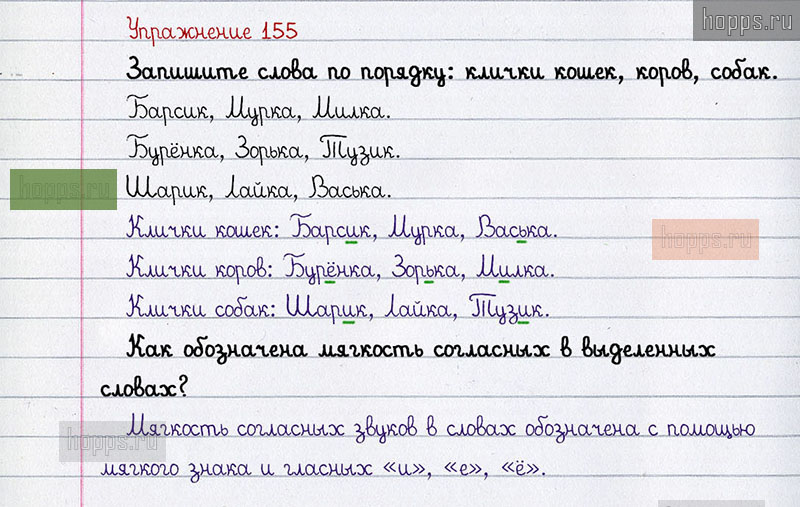 hopps.ru
Упражнение 155
Запишите слова по порядку: клички кошек, коров, собак.
Барсик, Мурка, Милка.
Бурёнка, Зорька, Тузик.
hopps.ru
Шарик, Лайка, Васька.
Клички кошек: Барсик, Мурка, Васька.
hopps.ru
Клички коров: Бурёнка, Зорька, Милка.
Клички собак: Шарик, Лайка, Тузик.
Как обозначена мягкость согласных в выделенных
словах?
Мягкость согласных звуков в словах обозначена с помощью
hopps.ru
мягкого знака и гласных «и», «е», «ё».